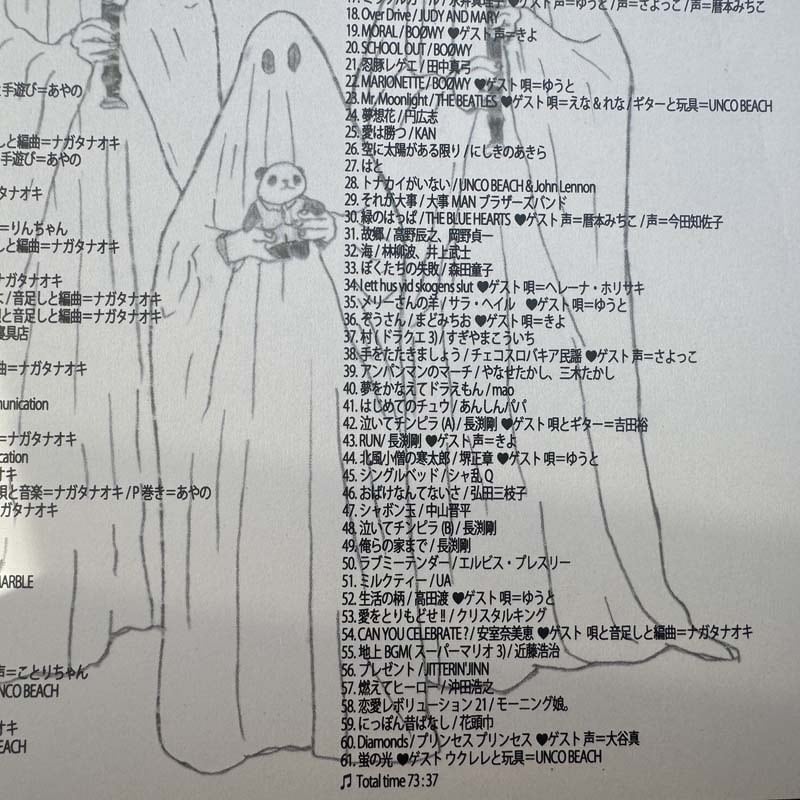 手遊び=あやの
しと編曲=ナガタナオキ
手遊び=あやの
タナオキ
=りんちゃん
しと編曲=ナガタナオキ
ナガタナオキ
/ 音足しと編曲=ナガタナオキ
と音足しと編曲=ナガタナオキ
寝具店
曲=ナガタナオキ
munication
=ナガタナオキ
cation
キ
唄と音楽=ナガタナオキ / P 巻き=あやの
ガタナオキ
MARBLE
声=ことりちゃん
UNCO BEACH
オキ
BEACH
♥ゲスト 声=ゆうと / 声=さよっこ / 声=暦本みちこ
18. Over Drive / JUDY AND MARY
19. MORAL / BOØWY ♥ゲスト 声=きよ
20. SCHOOL OUT / BOØWY
21. 忍豚レゲエ / 田中真弓
22. MARIONETTE / BOØWY ♥ゲスト 唄=ゆうと
23. Mr. Moonlight / THE BEATLES ♥ゲスト 唄=えな & れな / ギターと玩具=UNCO BEACH
24. 夢想花 / 円広志
25. 愛は勝つ / KAN
26. 空に太陽がある限り / にしきのあきら
27. はと
28. トナカイがいない / UNCO BEACH & John Lennon
29. それが大事 / 大事 MAN ブラザーズバンド
30. 緑のはっぱ / THE BLUE HEARTS ♥ゲスト 声=暦本みちこ / 声=今田知佐子
31. 故郷 / 高野辰之、岡野貞一
32. 海 / 林柳波、井上武士
33. ぼくたちの失敗 / 森田童子
34. I ett hus vid skogens slut ♥ゲスト 唄=ヘレーナ・ホリサキ
35. メリーさんの羊 / サラ・ヘイル ♥ゲスト 唄=ゆうと
36. ぞうさん / まどみちお ♥ゲスト 唄=きよ
37. 村 ( ドラクエ 3) / すぎやまこういち
38. 手をたたきましょう / チェコスロバキア民謡 ♥ゲスト 声=さよっこ
39. アンパンマンのマーチ / やなせたかし、三木たかし
40. 夢をかなえてドラえもん / mao
41. はじめてのチュウ / あんしんパパ
42. 泣いてチンピラ (A) / 長渕剛 ♥ゲスト 唄とギター=吉田裕
43. RUN / 長渕剛 ♥ゲスト 声=きよ
44. 北風小僧の寒太郎 / 堺正章 ♥ゲスト 唄=ゆうと
45. シングルベッド / シャ乱 Q
46. おばけなんてないさ / 弘田三枝子
47. シャボン玉 / 中山晋平
48. 泣いてチンピラ (B) / 長渕剛
49. 俺らの家まで / 長渕剛
50. ラブミーテンダー / エルビス・プレスリー
51. ミルクティー / UA
52. 生活の柄 / 高田渡 ♥ゲスト 唄=ゆうと
53. 愛をとりもどせ !! / クリスタルキング
54. CAN YOU CELEBRATE ? / 安室奈美恵 ♥ゲスト 唄と音足しと編曲=ナガタナオキ
55. 地上 BGM( スーパーマリオ 3) / 近藤浩治
56. プレゼント / JITTERIN'JINN
57. 燃えてヒーロー / 沖田浩之
58. 恋愛レボリューション 21 / モーニング娘。
59. にっぽん昔ばなし / 花頭巾
60. Diamonds / プリンセス プリンセス ♥ゲスト 声=大谷真
61. 蛍の光 ♥ゲスト ウクレレと玩具=UNCO BEACH
♫ Total time 73 : 37